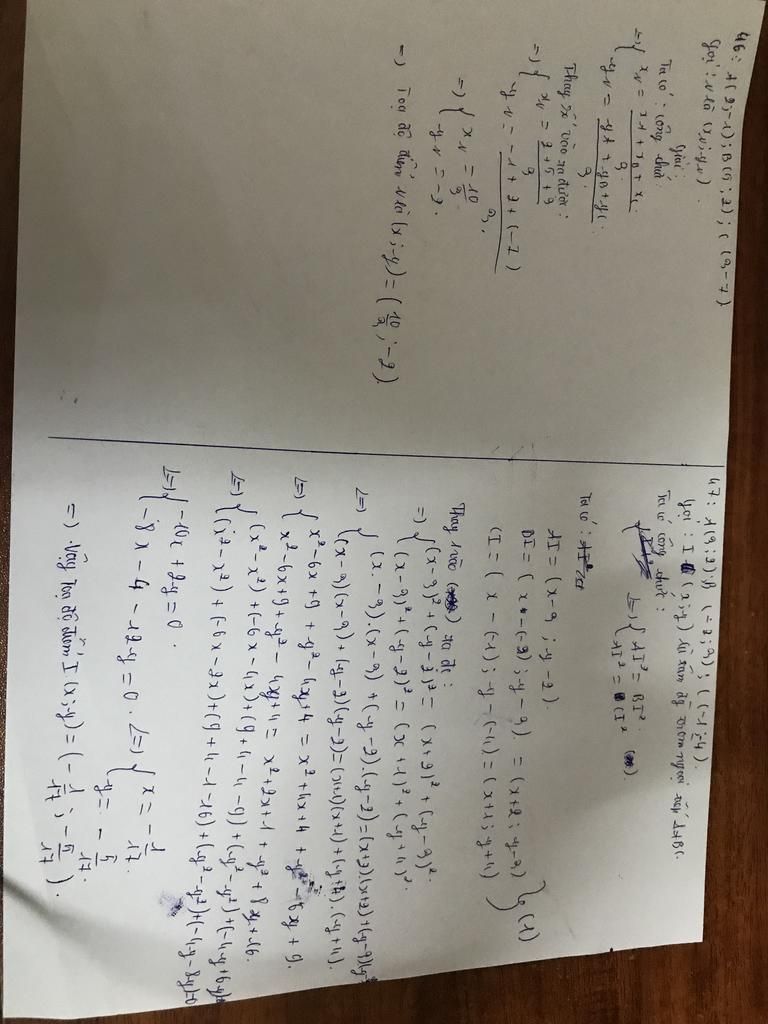 46: A(2;-1); B(5;2); C(3;-7)
Gọi: N là (xN; yN).
Giải:
Ta có: công thức
<=> { xN = (xA + xB + xC)/3
yN = (yA + yB + yC)/3
Thay số vào ta được:
=> { xN = (2 + 5 + 3)/3
yN = (-1 + 2 + (-7))/3
=> { xN = 10/3
yN = -2.
=> Toạ độ điểm N là (x; y) = (10/3; -2).
47: A(3;2); B(-2;3); C(-1;-4).
Gọi: I(x;y) là tâm đg tròn ngoại tiếp ΔABC.
Ta có công thức:
<=> { AI² = BI²
AI² = CI²
Ta có:
AI = (x-3; y-2)
BI = (x-(-2); y-3) = (x+2; y-3)
CI = (x-(-1); y-(-4)) = (x+1; y+4) } (1)
Thay vào ta đc:
=> { (x-3)² + (y-2)² = (x+2)² + (y-3)².
(x-3)² + (y-2)² = (x+1)² + (y+4)².
<=> { (x-3).(x-3) + (y-2).(y-2) = (x+2)(x+2) + (y-3)(y-3)
(x-3)(x-3) + (y-2)(y-2) = (x+1)(x+1) + (y+4).(y+4).
<=> { x²-6x+9+y²-4y+4 = x²+4x+4+y²-6y+9.
x²-6x+9+y²-4y+4 = x²+2x+1+y²+8y+16.
<=> { (x²-x²)+(-6x-4x)+(9+4-4-9)+(y²-y²)+(-4y+6y)=0
(x²-x²)+(-6x-2x)+(9+4-1-16)+(y²-y²)+(-4y-8y)=0
<=> { -10x+2y=0.
-8x-4-12y=0. <=> { x = -1/17.
y = -5/17.
=> Vậy toạ độ điểm I(x;y) = (-1/17; -5/17).